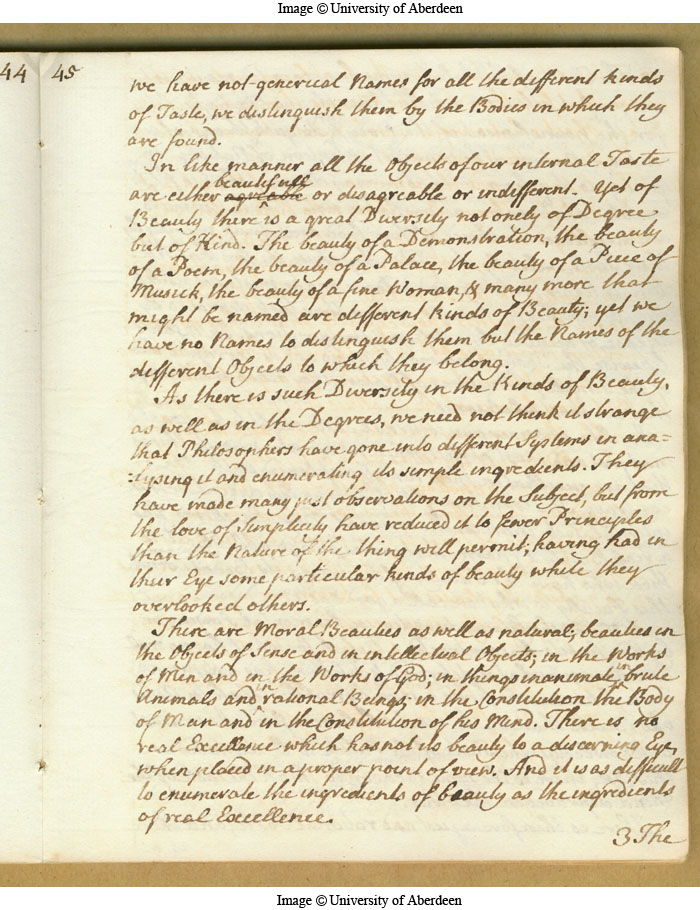 Image © University of Aberdeen
44 45
we have not generical Names for all the different kinds
of Taste, we distinguish them by the Bodies in which they
are found.
In like manner all the Objects of our internal Taste
beautifull
are either agreable or disagreable or indifferent. Yet of
Beauty there is a great Diversity not onely of Degree
but of Kind. The beauty of a Demonstration, the beauty
of a Poem, the beauty of a Palace, the beauty of a Piece of
Musick, the beauty of a fine Woman, & many more that
might be named are different kinds of Beauty; yet we
have no Names to distinguish them but the Names of the
different Objects to which they belong.
As there is such Diversity in the Kinds of Beauty,
as well as in the Degrees, we need not think it strange
that Philosophers have gone into different Systems in ana=
=lysing it and enumerating its simple ingredients. They
have made many just observations on the Subject, but from
the love of Simplicity have reduced it to fewer Principles
than the Nature of the thing will permit; having had in
their Eye some particular kinds of beauty while they
overlooked others.
There are Moral Beauties as well as natural; beauties in
the Objects of Sense and in intellectual Objects; in the Works
of Men and in the Works of God; in things inanimate, in brute
Animals and in rational Beings; in the Constitution of the Body
of Man and in the Constitution of his Mind. There is no
real Excellence which has not its beauty to a discerning Eye,
when placed in a proper point of view. And it is as difficult
to enumerate the ingredients of beauty as the ingredients
of real Excellence.
3 The
Image © University of Aberdeen